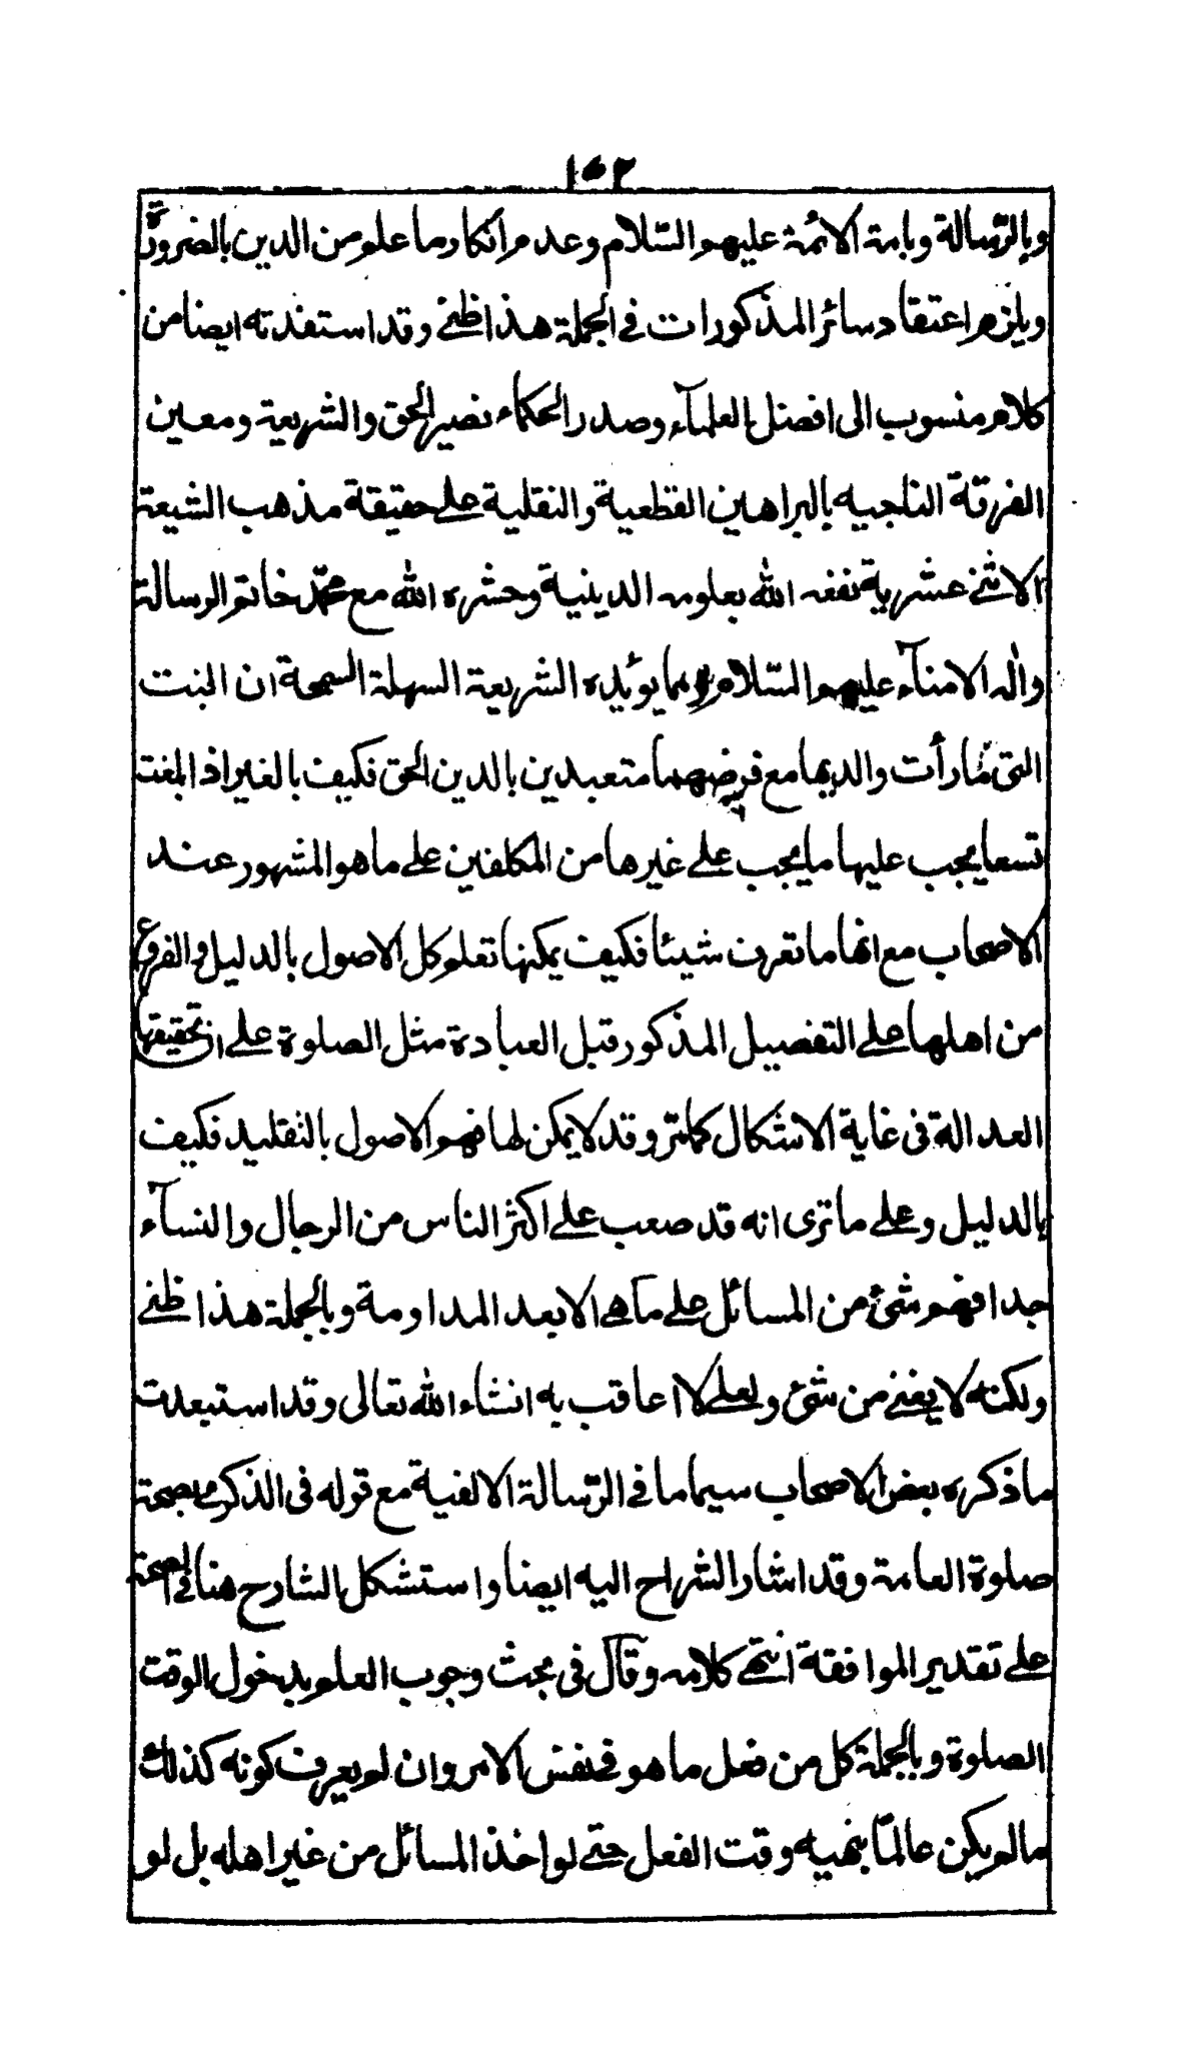 ١٥٢
وبالرّسالة وبامة الائمة عليهم السّلام وعدم انكار ما علم من الدين بالضرورة
ويلزم اعتقاد سائر المذكورات فى الجملة هذا ظنّى وقد استفدته ايضا من
كلام منسوب الى افضل العلمآء وصدر الحكماء نصير الحق والشريعة ومعين
الفرقة الناجيه بالبراهين القطعية والنقلية على حقيقة مذهب الشيعة
الاثنى عشرية نفعه الله بعلومه الدينية وحشره الله مع محمّد خاتم الرسالة
واله الامنآء عليهم السّلام ومما يؤيده الشريعة السهلة السمحة ان البنت
التى ما رأت والديها مع فرضهما متعبدين بالدين الحق فكيف بالغير اذ ابلغت
تسعا يجب عليها ما يجب على غيرها من المكلفين على ما هو المشهور عند
الاصحاب مع انها ما تعرف شيئا فكيف يمكنها تعلم كل الاصول بالدليل والفروع
من اهلها على التفصيل المذكور قبل العبادة مثل الصلوة على ان تحقيقها
العدالة فى غاية الاشكال كما ترّ وقد لا يمكن لها فهم الاصول بالتقليد فكيف
بالدليل وعلى ما ترى انه قد صعب على اكثر الناس من الرجال والنسآء
جدا فهم شئ من المسائل على ما هى الا بعد المداومة وبالجملة هذا ظنى
ولكنه لا يغنى من شئ ولعلى لا اعاقب به انشاء الله تعالى وقد استبعدت
ما ذكره بعض الاصحاب سيما ما فى الرّسالة الالفية مع قوله فى الذكرى بصحة
صلوة العامة وقد اشار الشراح اليه ايضا واستشكل الشارح هنا فى الصحة
على تقدير الموافقة انتهى كلامه وقال فى بحث وجوب العلم بدخول الوقت
الصلوة وبالجملة كل من فعل ما هو فى نفس الامر وان لم يعرف كونه كذلك
ما لم يكن عالمًا بنهيه وقت الفعل حتى لو اخذ المسائل من غير اهله بل لو